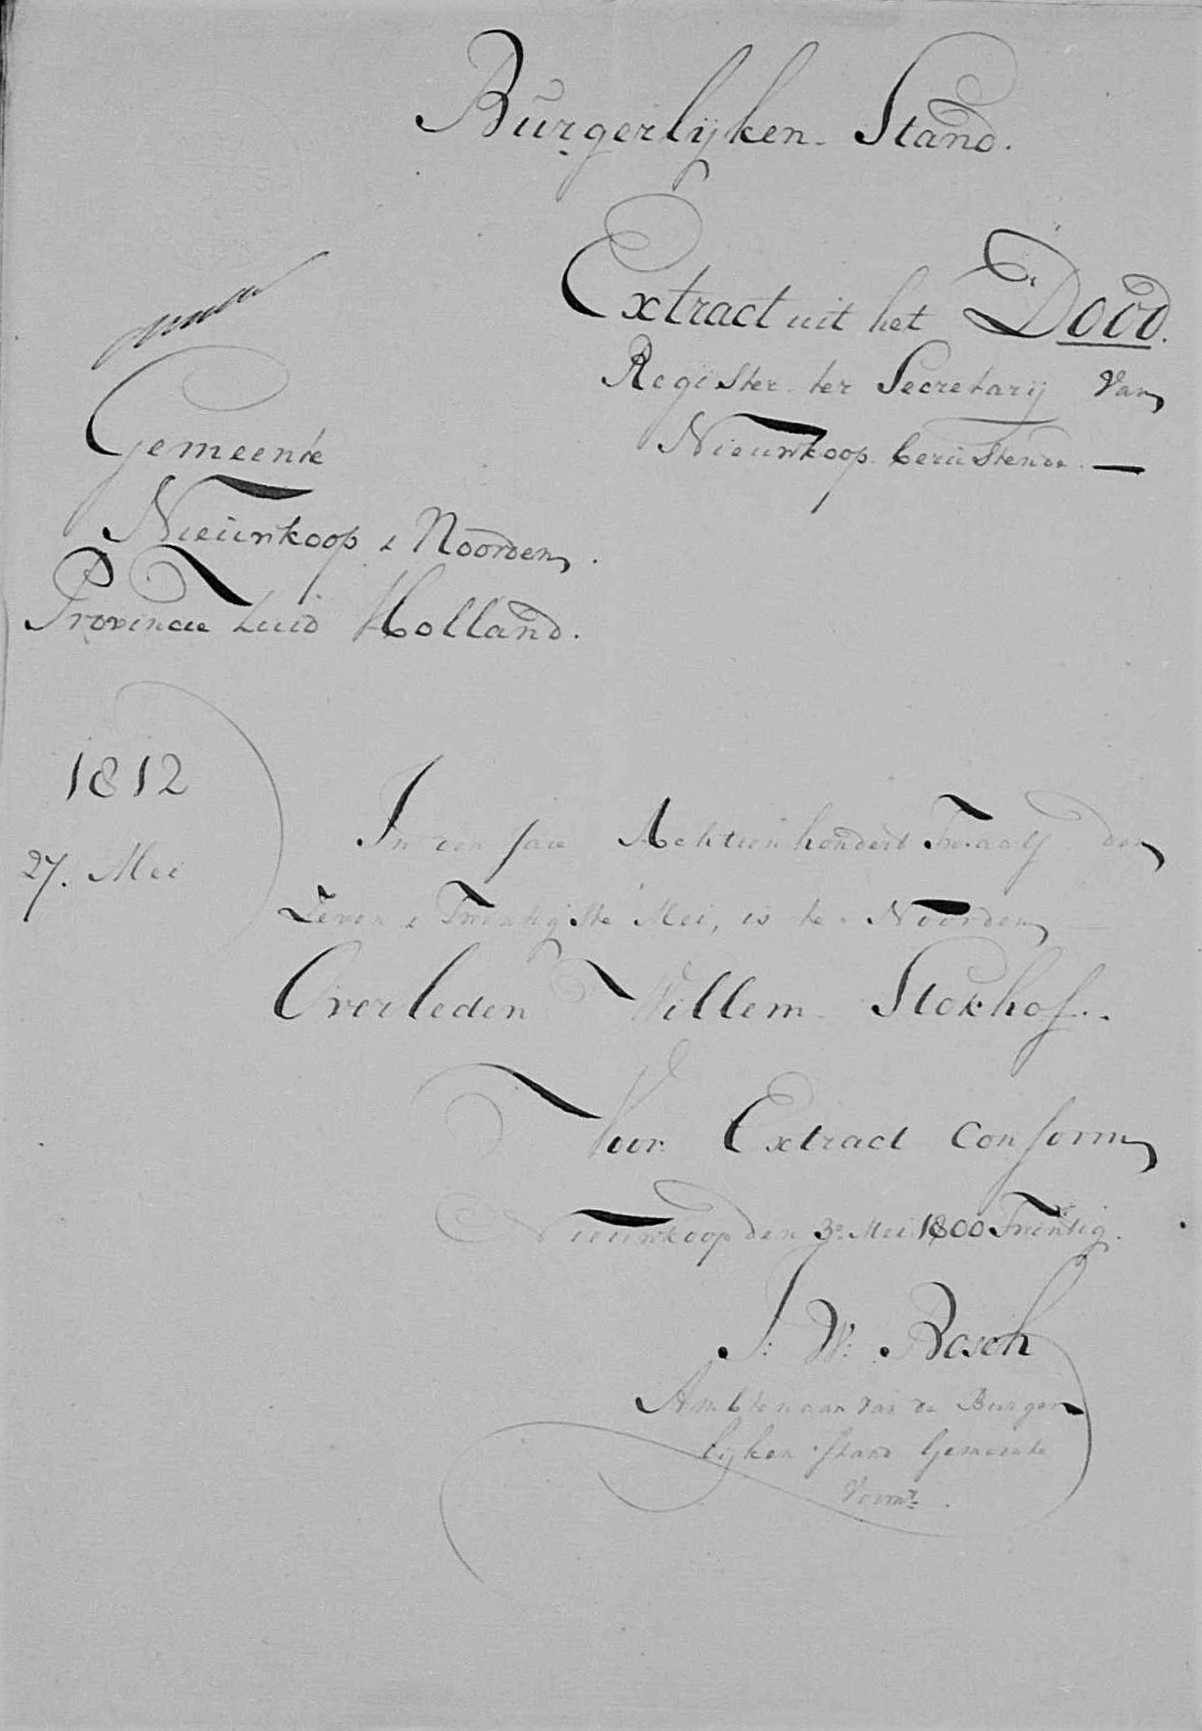 Burgerlyken Stand.
Extract uit het Dood.
Register ter Secretarij Van
Nieuwkoop berustende. —
Gemeente
Nieuwkoop & Noorden.
Provincie Zuid Holland.
1812
27. Mei
In den Jare Achtienhondert Twaalf den
Zeven & Twintigste Mei, is te Noorden
Overleden Willem Stokhof..
Voor Extract Conform
Nieuwkoop den 3e Mei 1800 Twintig.
J: W: Bosch
Ambtenaar van de Burger
lijken Stand Gemeente
Voormt.